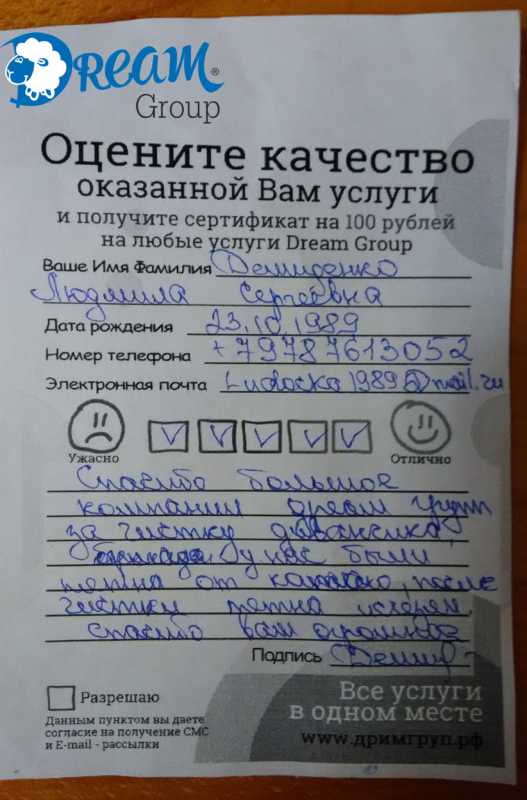 DREAM®
Group
Оцените качество
оказанной Вам услуги
и получите сертификат на 100 рублей
на любые услуги Dream Group
Ваше Имя Фамилия Демиденко
Людмила Сергеевна
Дата рождения 23.10.1989
Номер телефона +79787613052
Электронная почта Ludocka1989@mail.ru
Ужасно Отлично
Спасибо большое
компании дреам груп
за чистку диванчика,
у нас были
пятна от какао, после
чистки пятна
Спасибо вам огромное
Подпись
Разрешаю
Данным пунктом вы даете
согласие на получение СМС
и E-mail - рассылки
Все услуги
в одном месте
www.дримгруп.рф